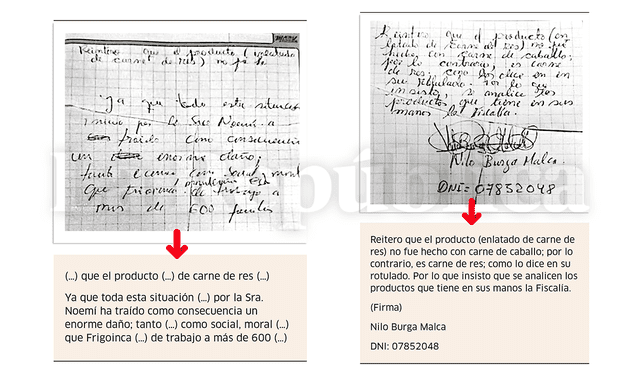 Reintero que el producto (enlatado
de carne de res) no fue
Ya que toda esta situación
por la Sra Noemí a
traído como consecuencia
un enorme daño;
tanto como social, moral
que
mas de 600
(...) que el producto (...) de carne de res (...)
Ya que toda esta situación (...) por la Sra.
Noemí ha traído como consecuencia un
enorme daño; tanto (...) como social, moral (...)
que Frigoinca (...) de trabajo a más de 600 (...)
que el producto (en
latado de carne de res) no fue
hecho con carne de caballo;
por lo contrario, es carne
de res; como los dice en
su rotulado. Por lo que
insisto, se analice los
productos que tiene en sus
manos la Fiscalía.
Nilo Burga Malca.
DNI: 07852048
Reitero que el producto (enlatado de carne de
res) no fue hecho con carne de caballo; por lo
contrario, es carne de res; como lo dice en su
rotulado. Por lo que insisto que se analicen los
productos que tiene en sus manos la Fiscalía.
(Firma)
Nilo Burga Malca
DNI: 07852048